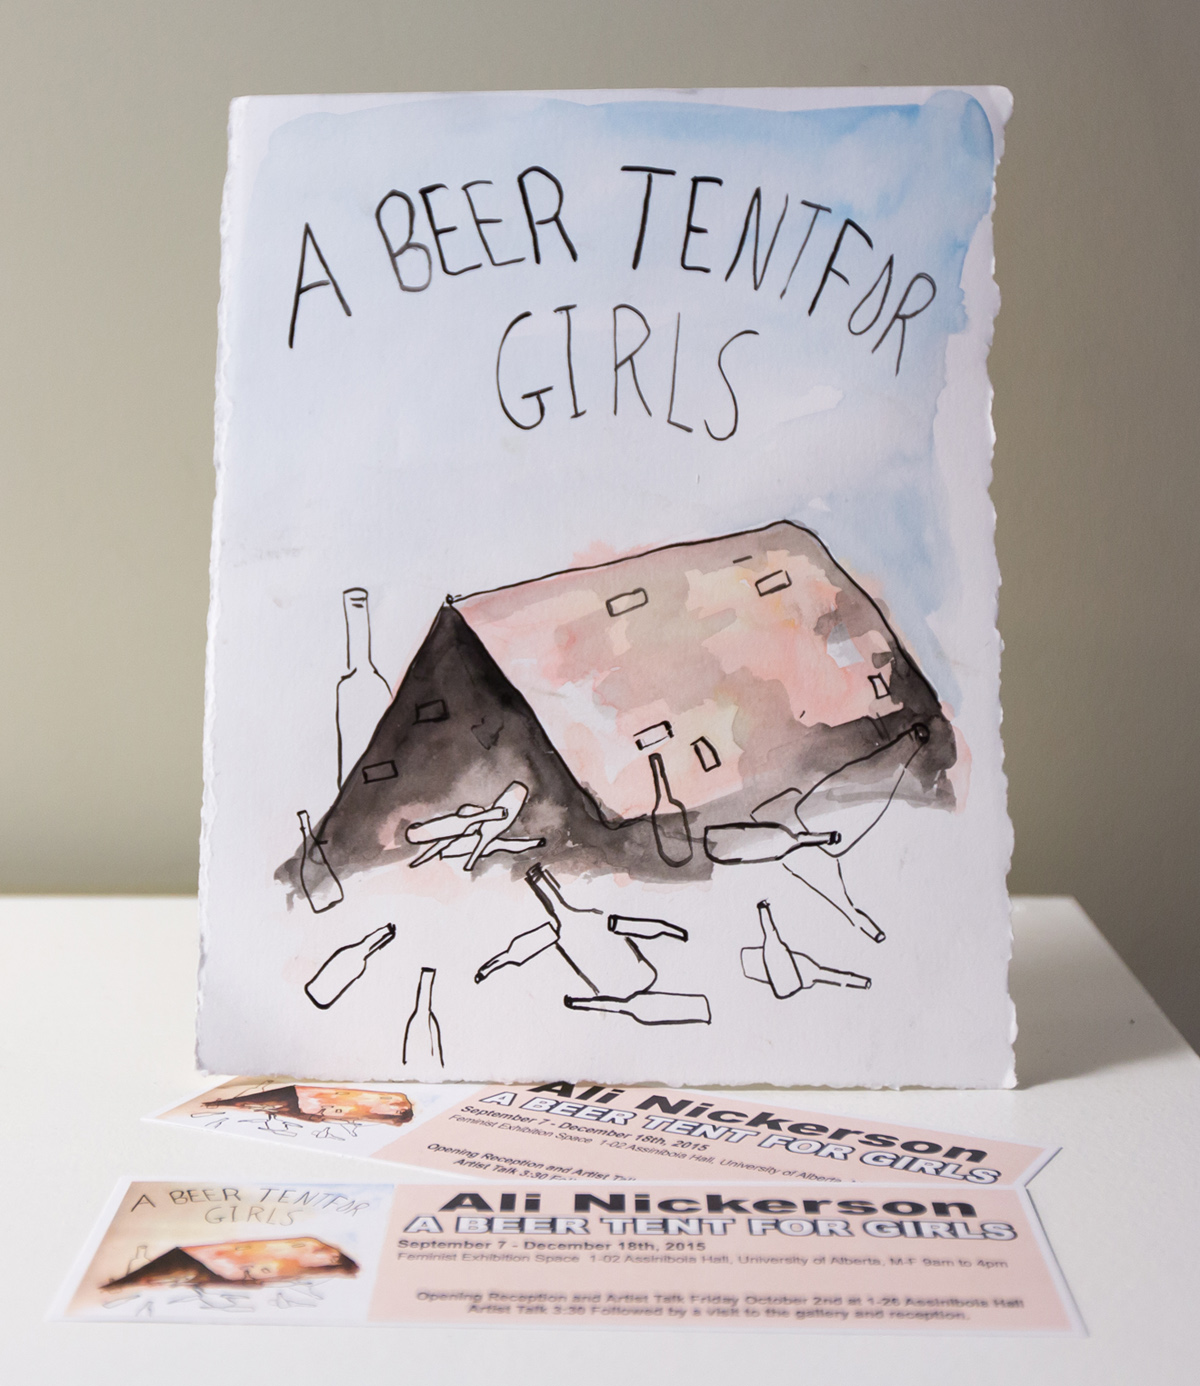 A BEER TENT FOR
GIRLS
Ali Nickerson
A BEER TENT FOR GIRLS
September 7 - December 18th, 2015
Feminist Exhibition Space 1-02 Assiniboia Hall, University of Alberta,
Opening Reception and Artist
Artist Talk 3:30
A BEER TENT FOR
GIRLS
Ali Nickerson
A BEER TENT FOR GIRLS
September 7 - December 18th, 2015
Feminist Exhibition Space 1-02 Assiniboia Hall, University of Alberta, M-F 9am to 4pm
Opening Reception and Artist Talk Friday October 2nd at 1-26 Assiniboia Hall
Artist Talk 3:30 Followed by a visit to the gallery and reception.